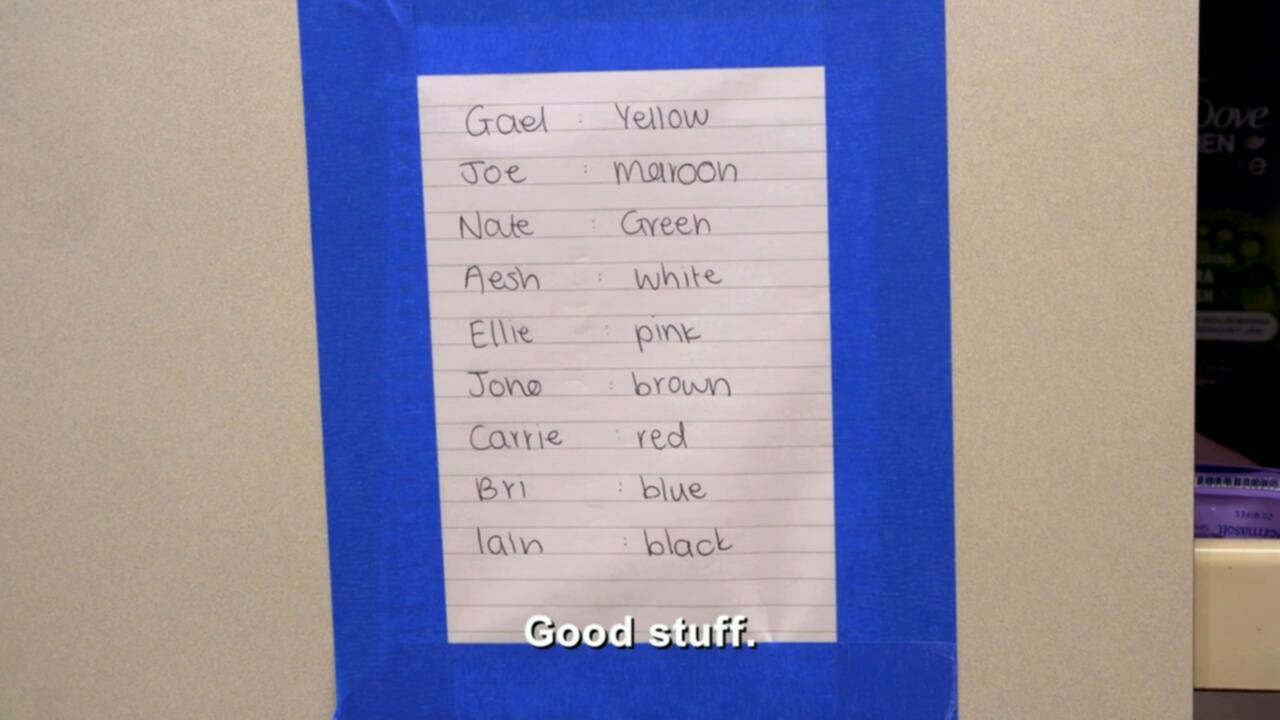 Gael : Yellow
Joe : maroon
Nate : Green
Aesh : white
Ellie : pink
Jono : brown
Carrie : red
Bri : blue
Iain : black
Good stuff.
Dove
EN
e
20 WIPES